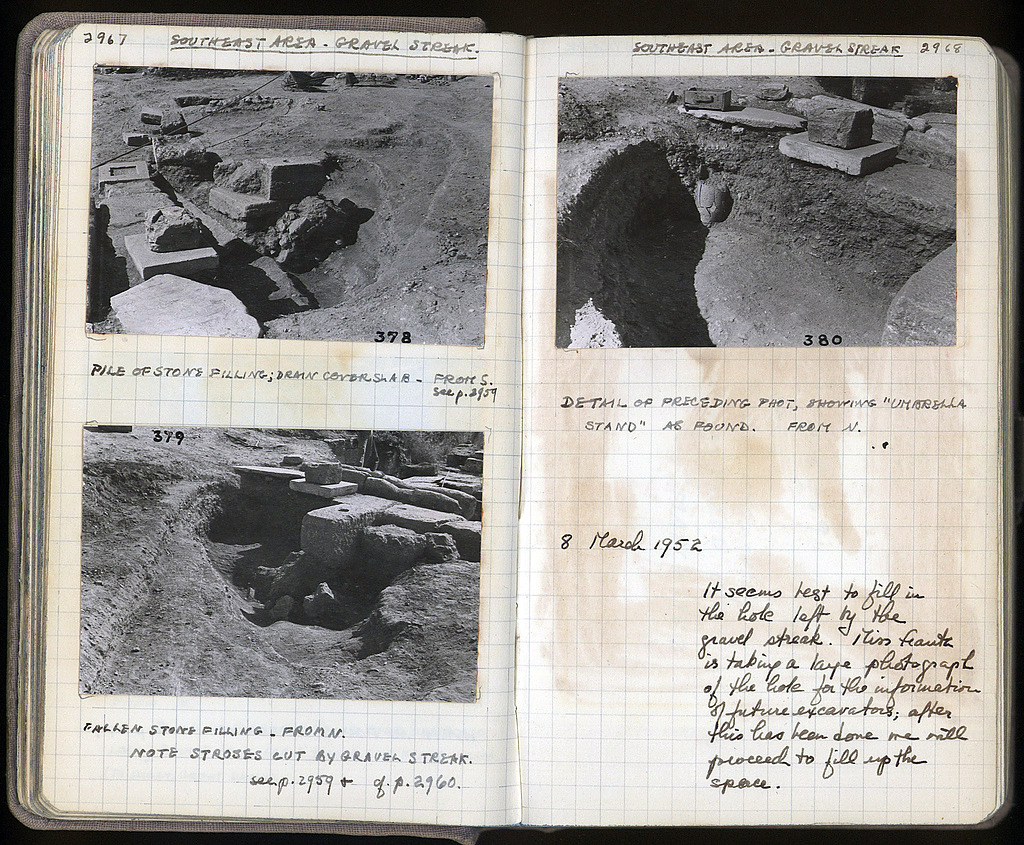 2967
SOUTHEAST AREA - GRAVEL STREAK.
378
PILE OF STONE FILLING; DRAIN COVER SLAB - FROM S.
see p. 2959
379
FALLEN STONE FILLING - FROM N.
NOTE STROSES CUT BY GRAVEL STREAK.
see p. 2959 + cf. p. 2960.
SOUTHEAST AREA - GRAVEL STREAK
2968
380
DETAIL OF PRECEDING PHOT, SHOWING "UMBRELLA
STAND" AS FOUND. FROM N.
8 March 1952
It seems best to fill in
the hole left by the
gravel streak. Miss Frantz
is taking a large photograph
of the hole for the information
of future excavators; after
this has been done we will
proceed to fill up the
space.